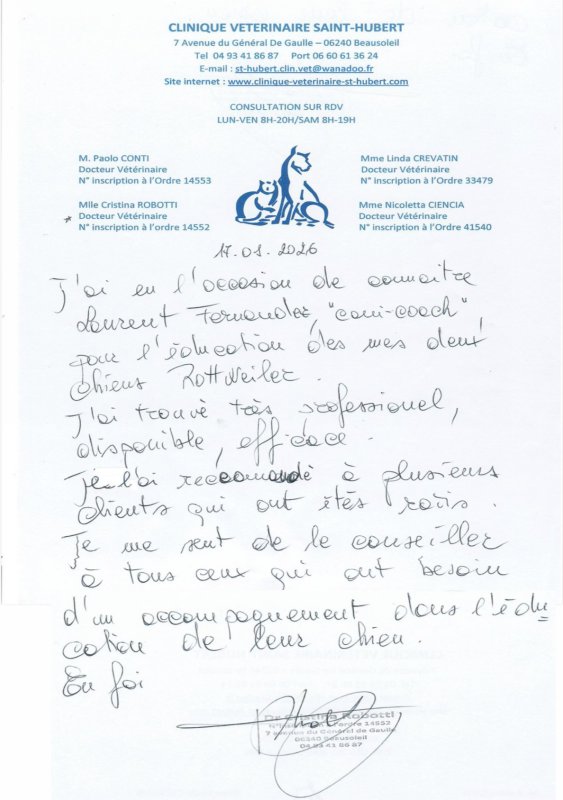 CLINIQUE VETERINAIRE SAINT-HUBERT
7 Avenue du Général De Gaulle – 06240 Beausoleil
Tel 04 93 41 86 87 Port 06 60 61 36 24
E-mail : st-hubert.clin.vet@wanadoo.fr
Site internet : www.clinique-veterinaire-st-hubert.com
CONSULTATION SUR RDV
LUN-VEN 8H-20H/SAM 8H-19H
M. Paolo CONTI
Docteur Vétérinaire
N° inscription à l'Ordre 14553
Mlle Cristina ROBOTTI
* Docteur Vétérinaire
N° inscription à l'Ordre 14552
Mme Linda CREVATIN
Docteur Vétérinaire
N° inscription à l'Ordre 33479
Mme Nicoletta CIENCIA
Docteur Vétérinaire
N° inscription à l'Ordre 41540
17.01.2026
J'ai eu l'occasion de connaitre
Laurent Fernandez, "cani-coach",
pour l'éducation des mes deux
chiens Rottweiler.
J'ai trouvé très professionel,
disponible, efficace.
Je l'ai recomandé à plusieurs
clients qui ont étés ravis.
Je me sent de le conseiller
à tous ceux qui ont besoin
d'un accompagnement dans l'édu
cation de leur chien.
En foi
Dr Cristina Robotti
N° inscription à l'Ordre 14552
7 avenue du Général de Gaulle
06240 Beausoleil
04 93 41 86 87